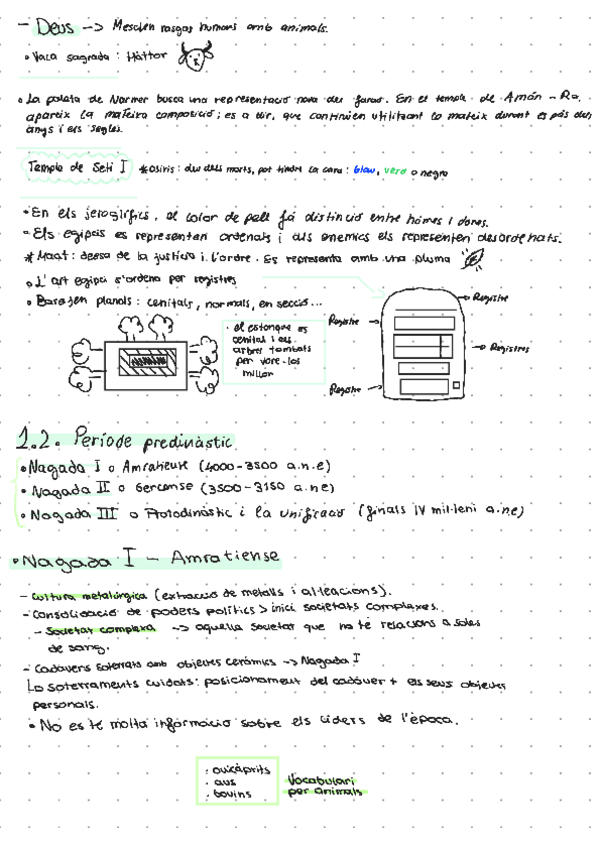 - Deus --> Mesclen rasgos humans amb animals.
• Vaca sagrada: Hàttor
• La paleta de Narmer busca una representació nova del faraó. En el temple de Amón - Ra,
apareix la mateixa composició; es a dir, que continuen utilitzant lo mateix durant es pàs dels
anys i els segles.
Temple de Seti I *Osiris: deu dels morts, pot tindre la cara: blau, verd o negro
• En els jeroglífics, el color de pell fa distinció entre hòmes i dones.
• Els egipcis es representen ordenats i als enemics els representen desordenats.
* Maat: deesa de la justicia i l'ordre. Es representa amb una pluma
• L'art egipci s'ordena per registres
• Barajen planols: cenitals, normals, en secció...
• el estanque es
cenital i els
arbres tombats
per vore-los
millor
Registre
Registre
Registres
Registre
1.2. Període predinàstic
• Nagada I o Amratiense (4000-3500 a.n.e)
• Nagada II o Gerzense (3500-3150 a.n.e)
• Nagada III o Protodinàstic i la unificació (finals IV mil·leni a.n.e)
• Nagada I - Amratiense
- Cultura metalúrgica (extracció de metalls i aleacions).
- Consolidació de poders polítics > inici societats complexes.
- Societat complexa --> aquella societat que no té relacions a soles
de sang.
- Cadàvers soterrats amb objectes ceràmics --> Nagada I
Lo soterraments cuidats: posicionament del cadàver + els seus objectes
personals.
• No es té molta informació sobre els líders de l'època.
· ovicàprits
· aus
· bovins
Vocabulari
per animals